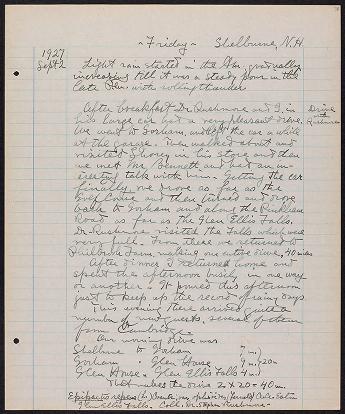 ~ Friday ~ Shelburne, N.H.
1927
Sept 2
Light rain started in the A.M. gradually
increasing till it was a steady pour in the
late P.M. with rolling thunder
After breakfast Dr. Rushmore and I in
his large car had a very pleasant drive.
We went to Gorham, and left the car a while
at the garage. Then walked about and
visited in his store and then
we met Mr. Bennett and had an
talk with him. Getting the car
finally we drove as far as the
Golf Course and then turned and drove
back to Gorham and along the Pinkham
Road as far as the Glen Ellis Falls.
Dr. Rushmore visited the Falls which were
very full. From there we returned to
Philbrook Farm, making our entire drive, 40 miles
After dinner I returned home and
spent the afternoon busily in one way
or another. It poured this afternoon
just to keep up the record of rainy days.
This evening there arrived quite a
number of new guests, several of them
from Cambridge.
Our morning drive was
Shelburne to Gorham 7 m.
Gorham " Glen House 9 m. 20
Glen House " Glen Ellis Falls 4 m
That makes the drive 2 x 20 = 40 m.
Drive
with
Rushmore
Epipactis repens (L.) Crantz, var. ophioides (Fernald) A.A. Eaton
Glen Ellis Falls. Coll. Dr. Rushmore